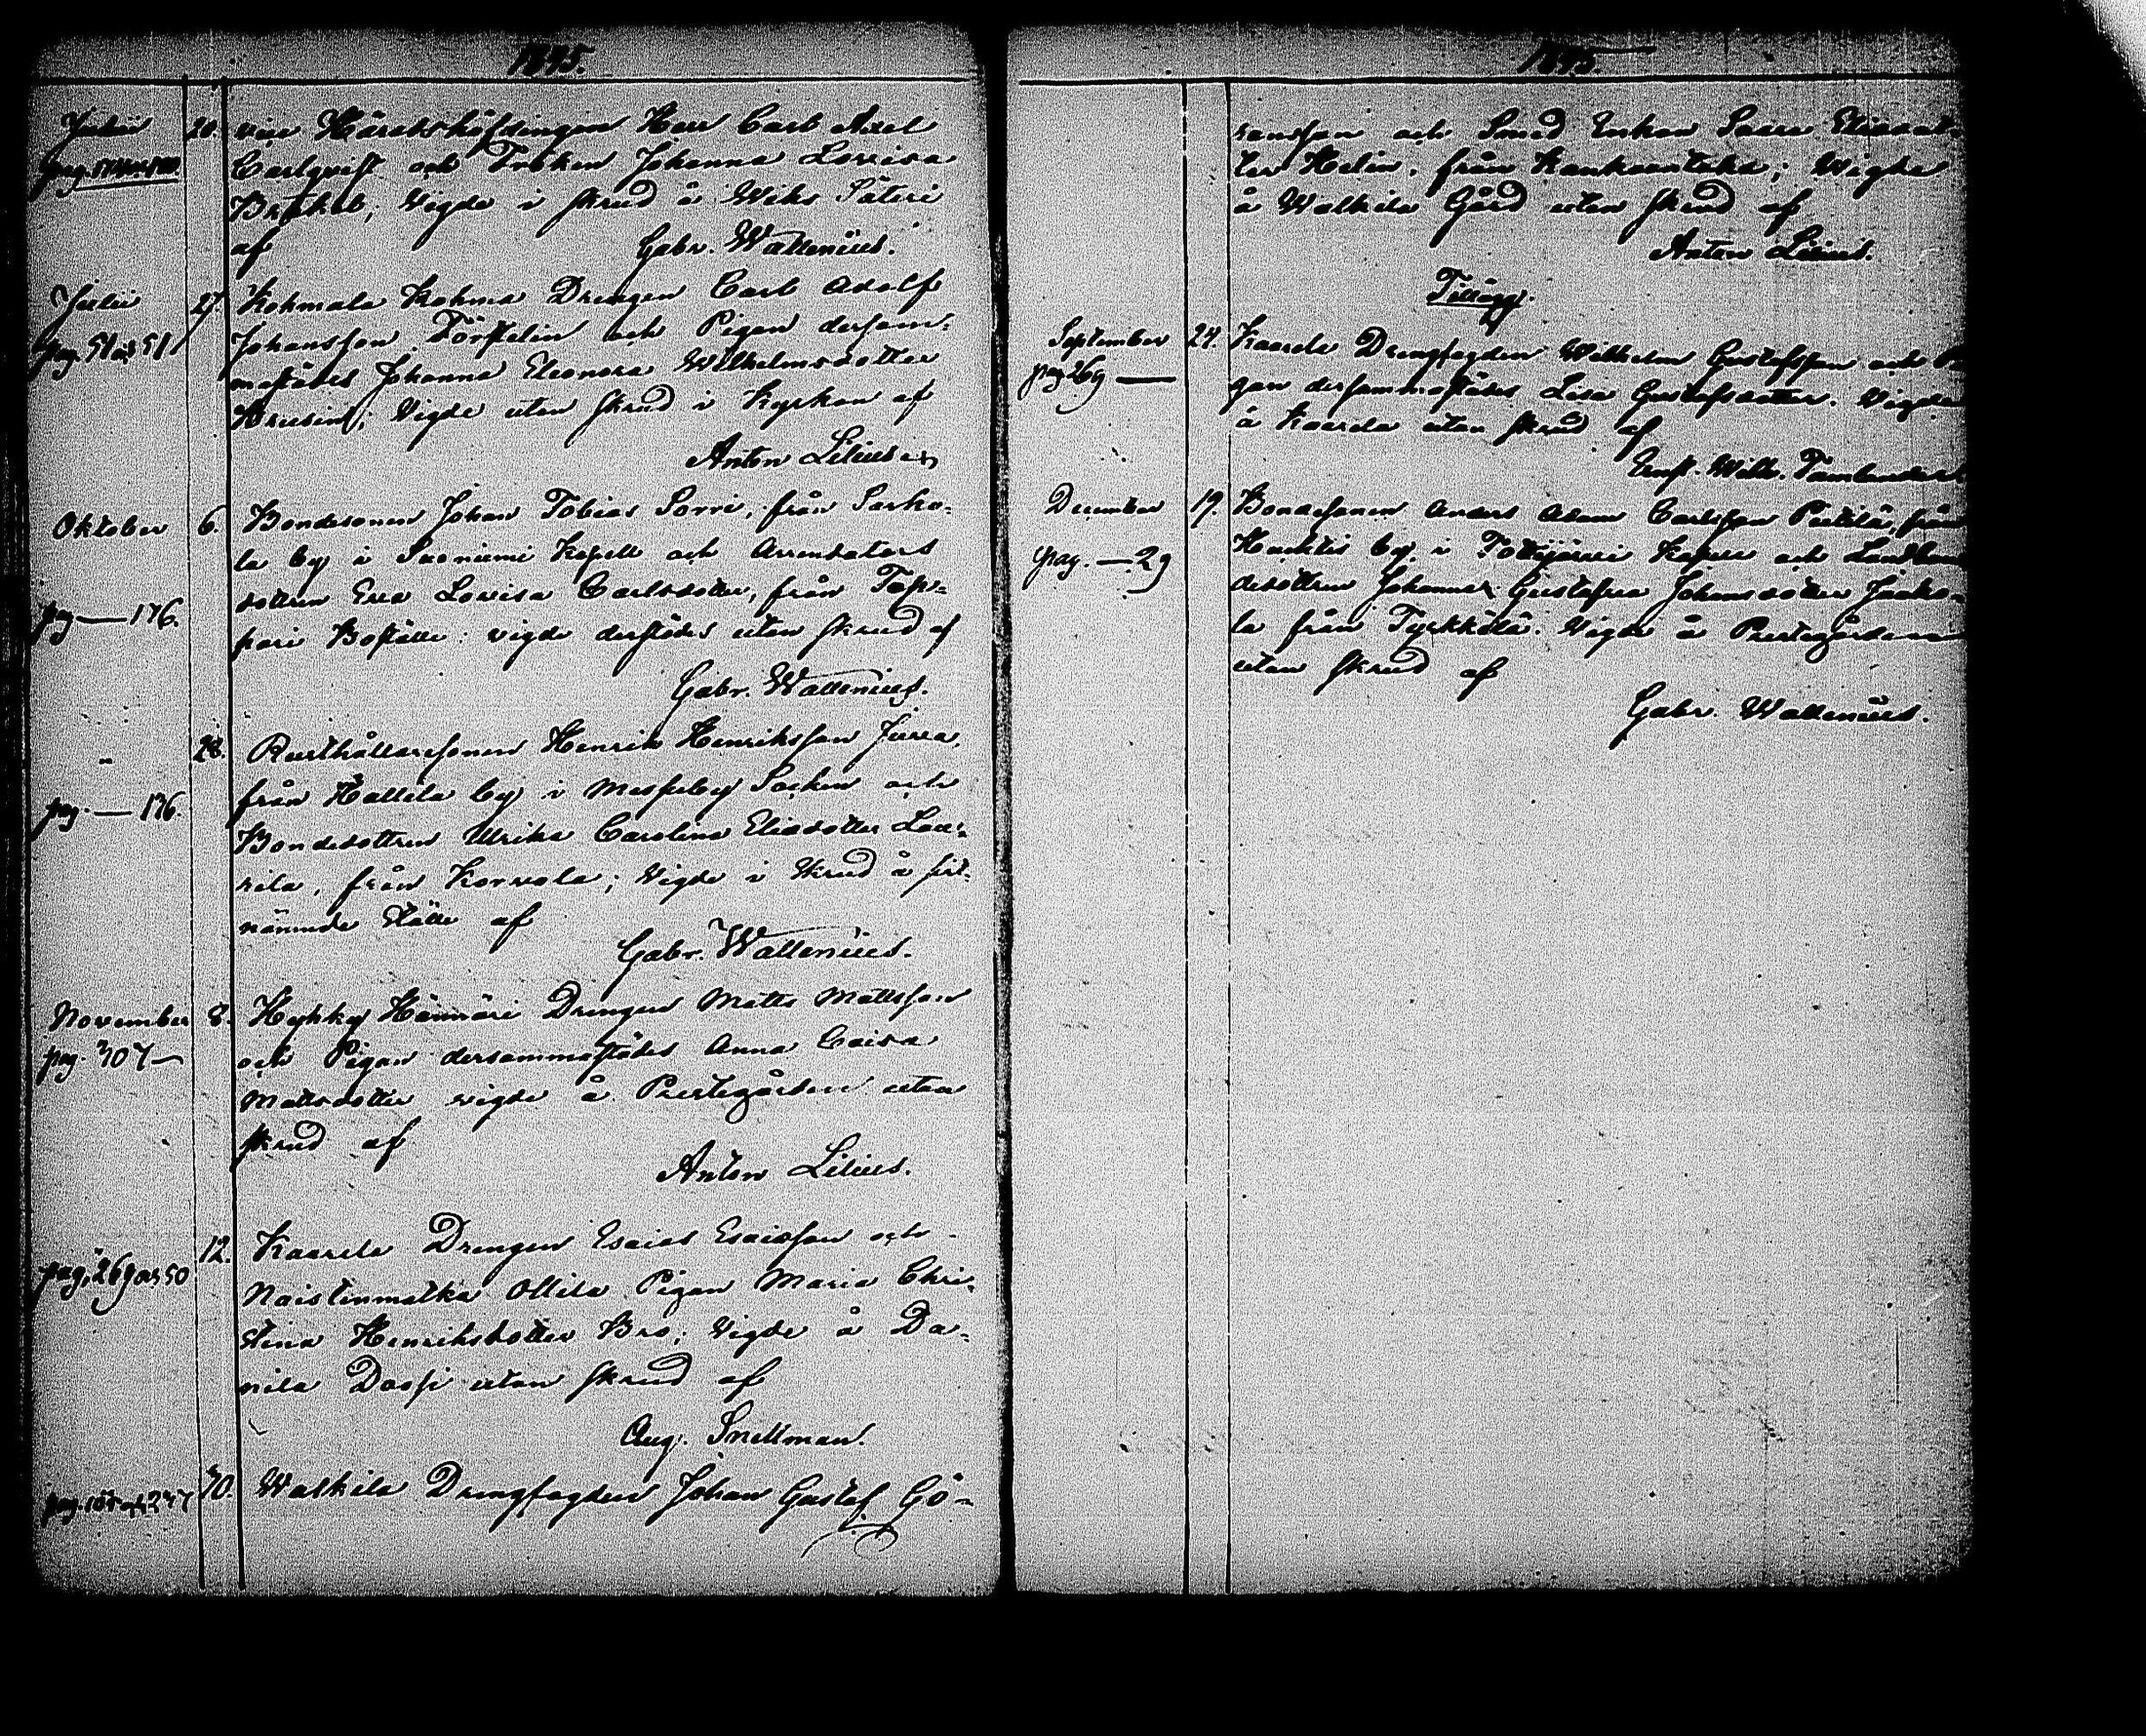 1845.
Julii 20. vice Häradshöfdingen Herr Carl Axel
Carlqvist och Fröken Johanna Lovisa
Vigde i skrud å Wiks Säteri
af Gabr. Wallenius.
Julii 27. Kohmala Kohma Drengen Carl Adolf
pag. 51 och 51 Johansson Törstelin och Pigan dersam-
mastädes Johanna Eleonora Wilhelmsdotter
Vigde utan skrud i Kyrkan af
Anton Lilius
Oktober 6. Bondesonen Johan Tobias Sorri, från Sarko-
la by i Suoniemi Kapell och Arrendators
dottren Eva Lovisa Carlsdotter, från Tap-
pag — 176. pari Boställe: vigde derstädes utan skrud af
Gabr. Wallenius.
" 28. Rusthållaresonen Henrik Henriksson Juva,
pag. — 176. från Hallila by i Messuby Socken och
Bondedottren Ulrika Carolina Eliedotter Lau-
rila, från Korvola; Vigde i Skrud å sist-
nämnde ställe af
Gabr. Wallenius.
November 8. Hyhky Hännäri Drengen Matts Mattsson
pag. 307 — och Pigan dersammastädes Anna Caisa
Mattsdotter vigde å Prestegården utan
skrud af
Anton Lilius.
12. Kaarila Drengen Esaias Esaiasson och
pag. 269 och 50 Naistenmatka Ollila Pigan Maria Chri-
stina Henriksdotter Bro; Vigde å Da-
nila utan skrud af
Aug. Snellman.
30. Walkila Drengfogden Johan Gustaf Gö-
1845.
ransson och Smed Enkan Eliædot-
ter Helin, från Kankaantaka; Wigde
å Walkila Gård utan skrud af
Anton Lilius.
Tillägg.
September 24. Kaarila Drengfogden Wilhelm Gustafsson och Pi
pag 269 — gan dersammastädes Lisa Gustafsdotter. Vigde
å Kaarila utan skrud af
Ernst. Wilh. Tamlander.
December 19. Bondesonen Anders Adam Carlsson Pietilä, från
pag. — 29 by i Tottijärvi Kapell och Landbon
dedottren Johanna Gustafva Johansdotter Jaako-
la från Tyrkkölä. Vigde å Prestegården
utan skrud af
Gabr. Wallenius.